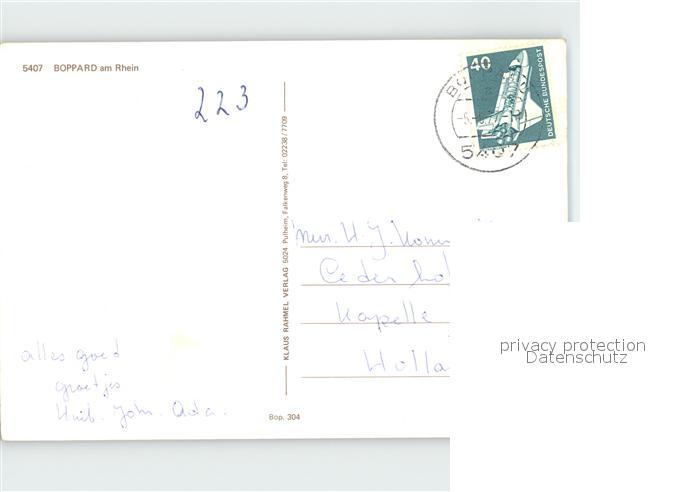 5407 BOPPARD am Rhein
223
40
DEUTSCHE BUNDESPOST
5407
KLAUS RAHMEL VERLAG 5024 Pulheim, Falkenweg 8, Tel: 02238/7709
H. J.
Ceder
Kapelle
Holla
privacy protection
Datenschutz
alles goed
groetjes
Huib. Joh. Ada.
Bop. 304